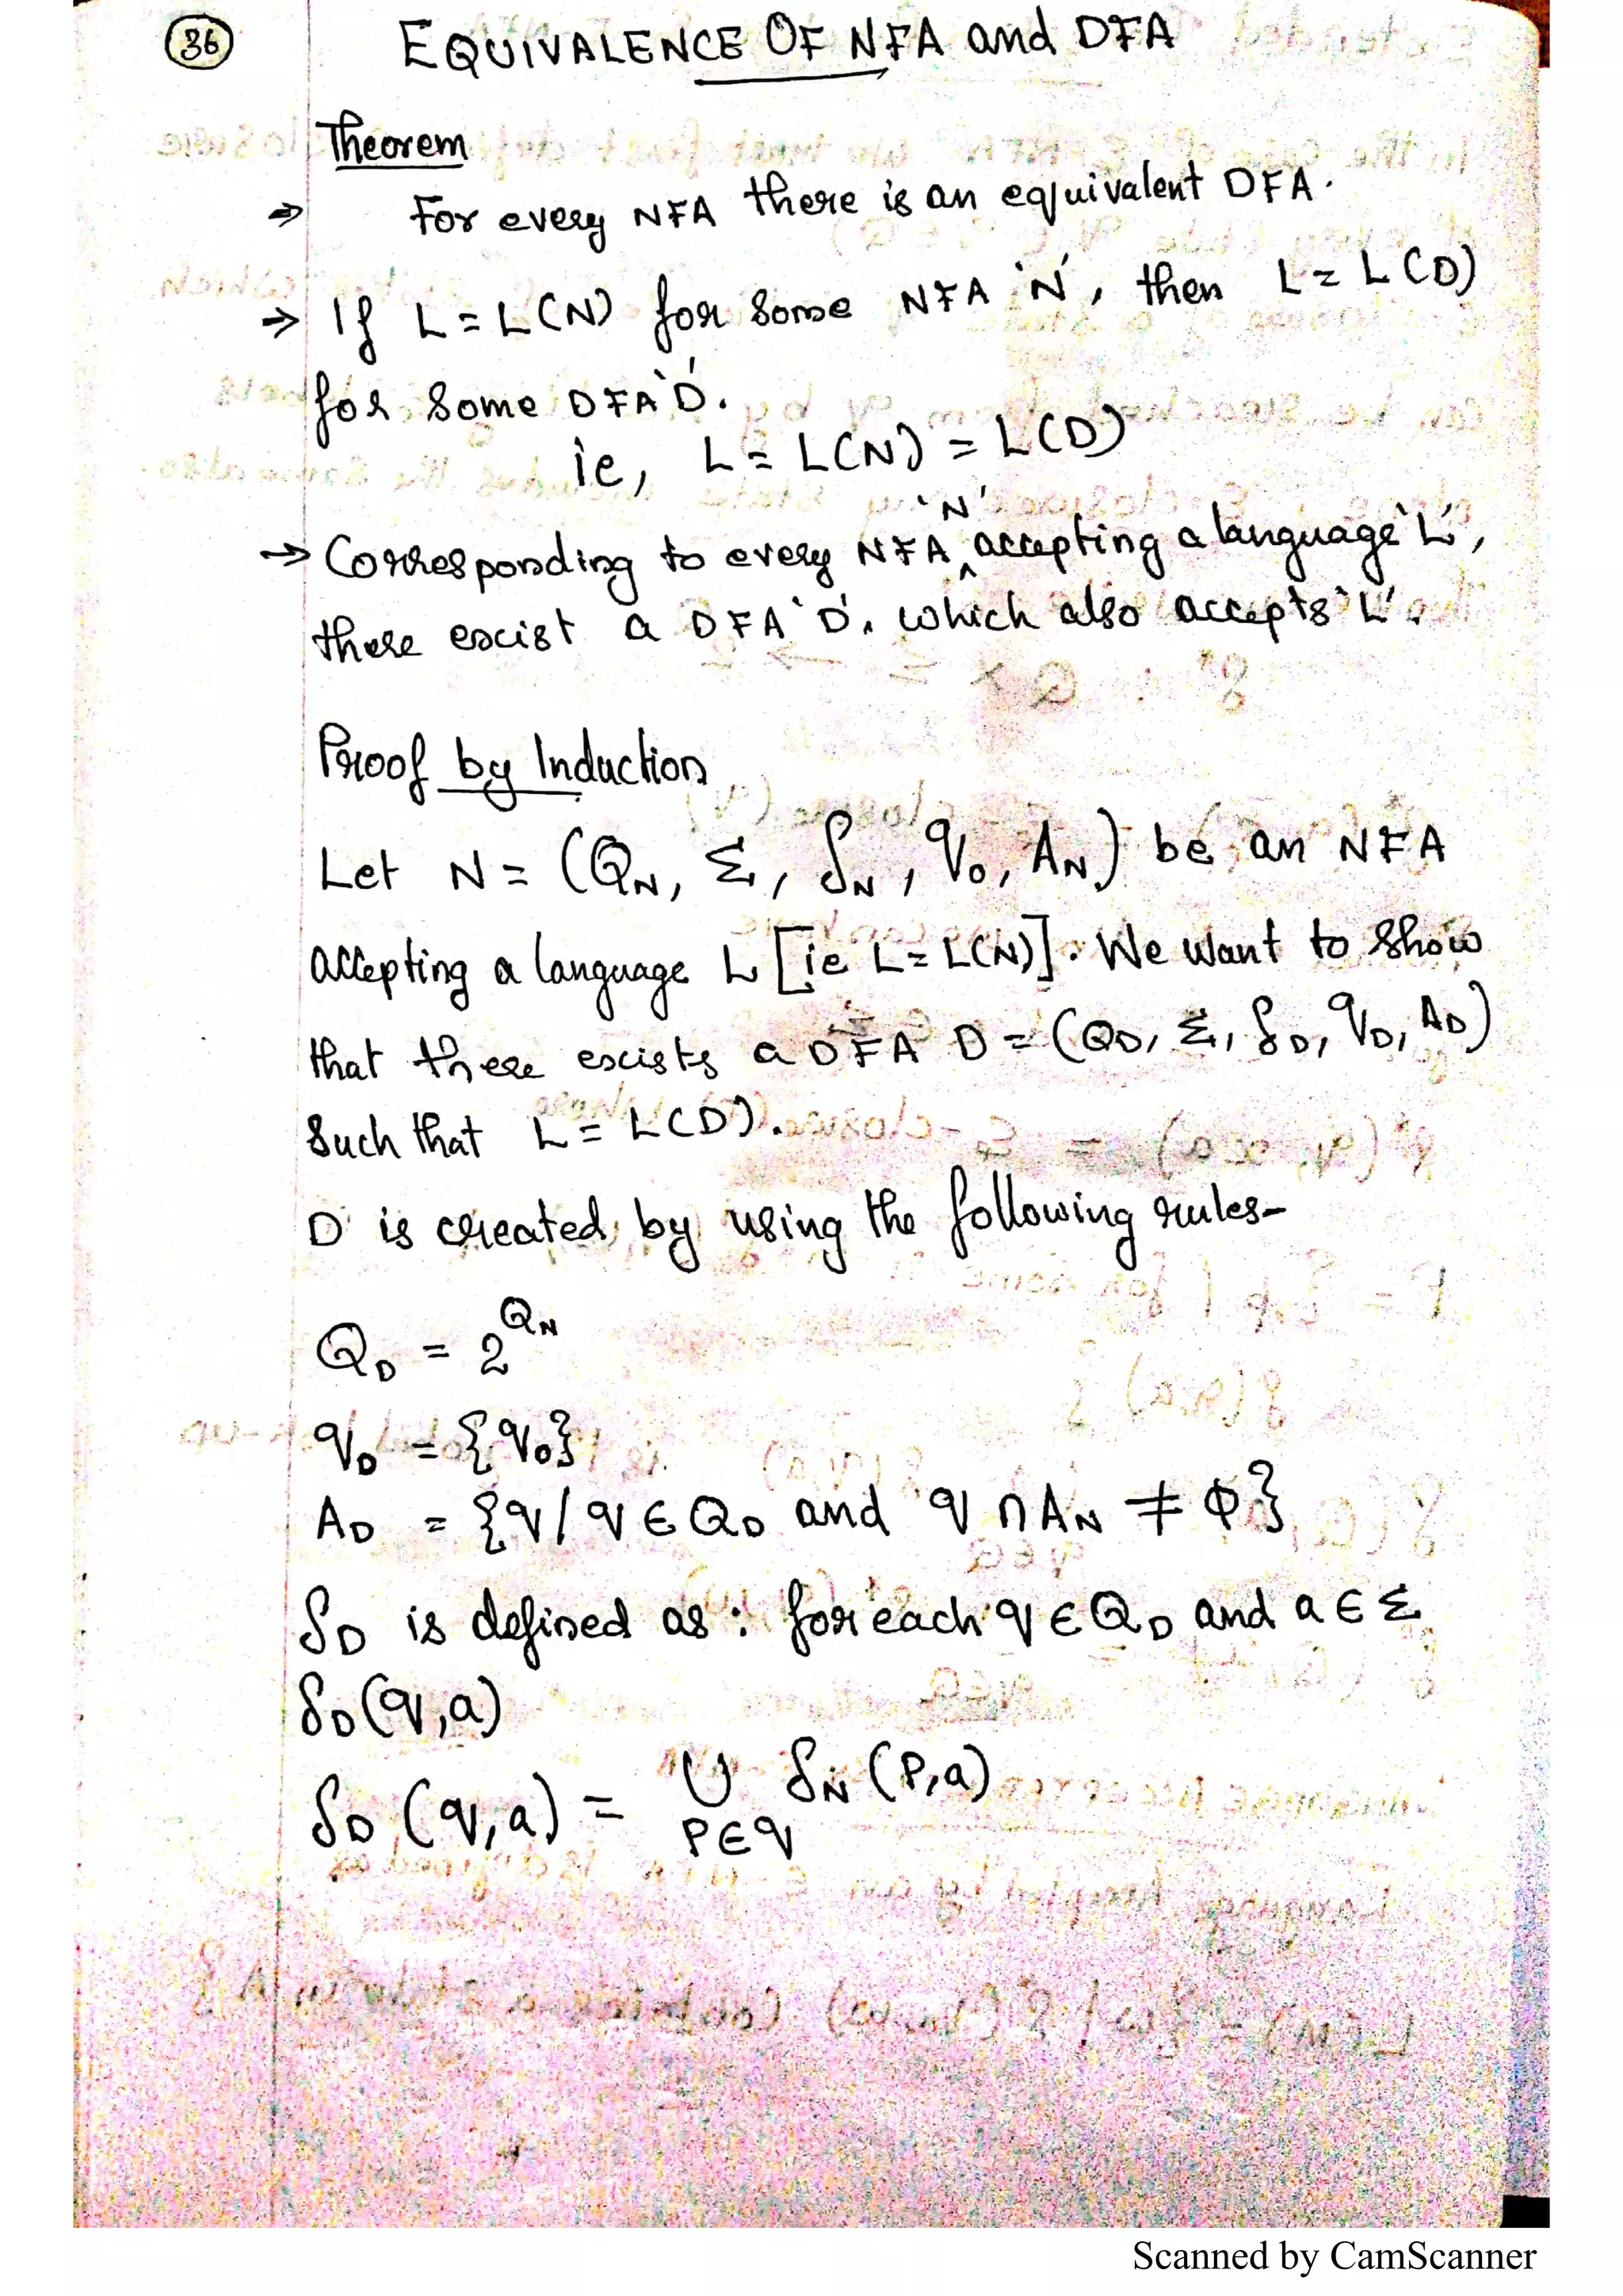 36
EQUIVALENCE OF NFA and DFA
Theorem
⇒ For every NFA there is an equivalent DFA.
→ If L = L(N) for some NFA 'N', then L = L(D)
for some DFA 'D'.
ie, L = L(N) = L(D)
'N'
→ Corresponding to every NFA ^ accepting a language 'L',
there excist a DFA 'D'. which also accepts 'L'.
Proof by Induction
Let N = (QN, Σ, δN, q0, AN) be an NFA
accepting a language L [ie L = L(N)]. We want to show
that there excists a DFA D = (QD, Σ, δD, qD, AD)
Such that L = L(D).
D is created by using the following rules-
QD = 2^QN
qD = {q0}
AD = {q/q ∈ QD and q ∩ AN ≠ ϕ}
δD is defined as : for each q ∈ QD and a ∈ Σ
δD(q,a)
δD(q,a) = ∪ δN(P,a)
P∈q
Scanned by CamScanner